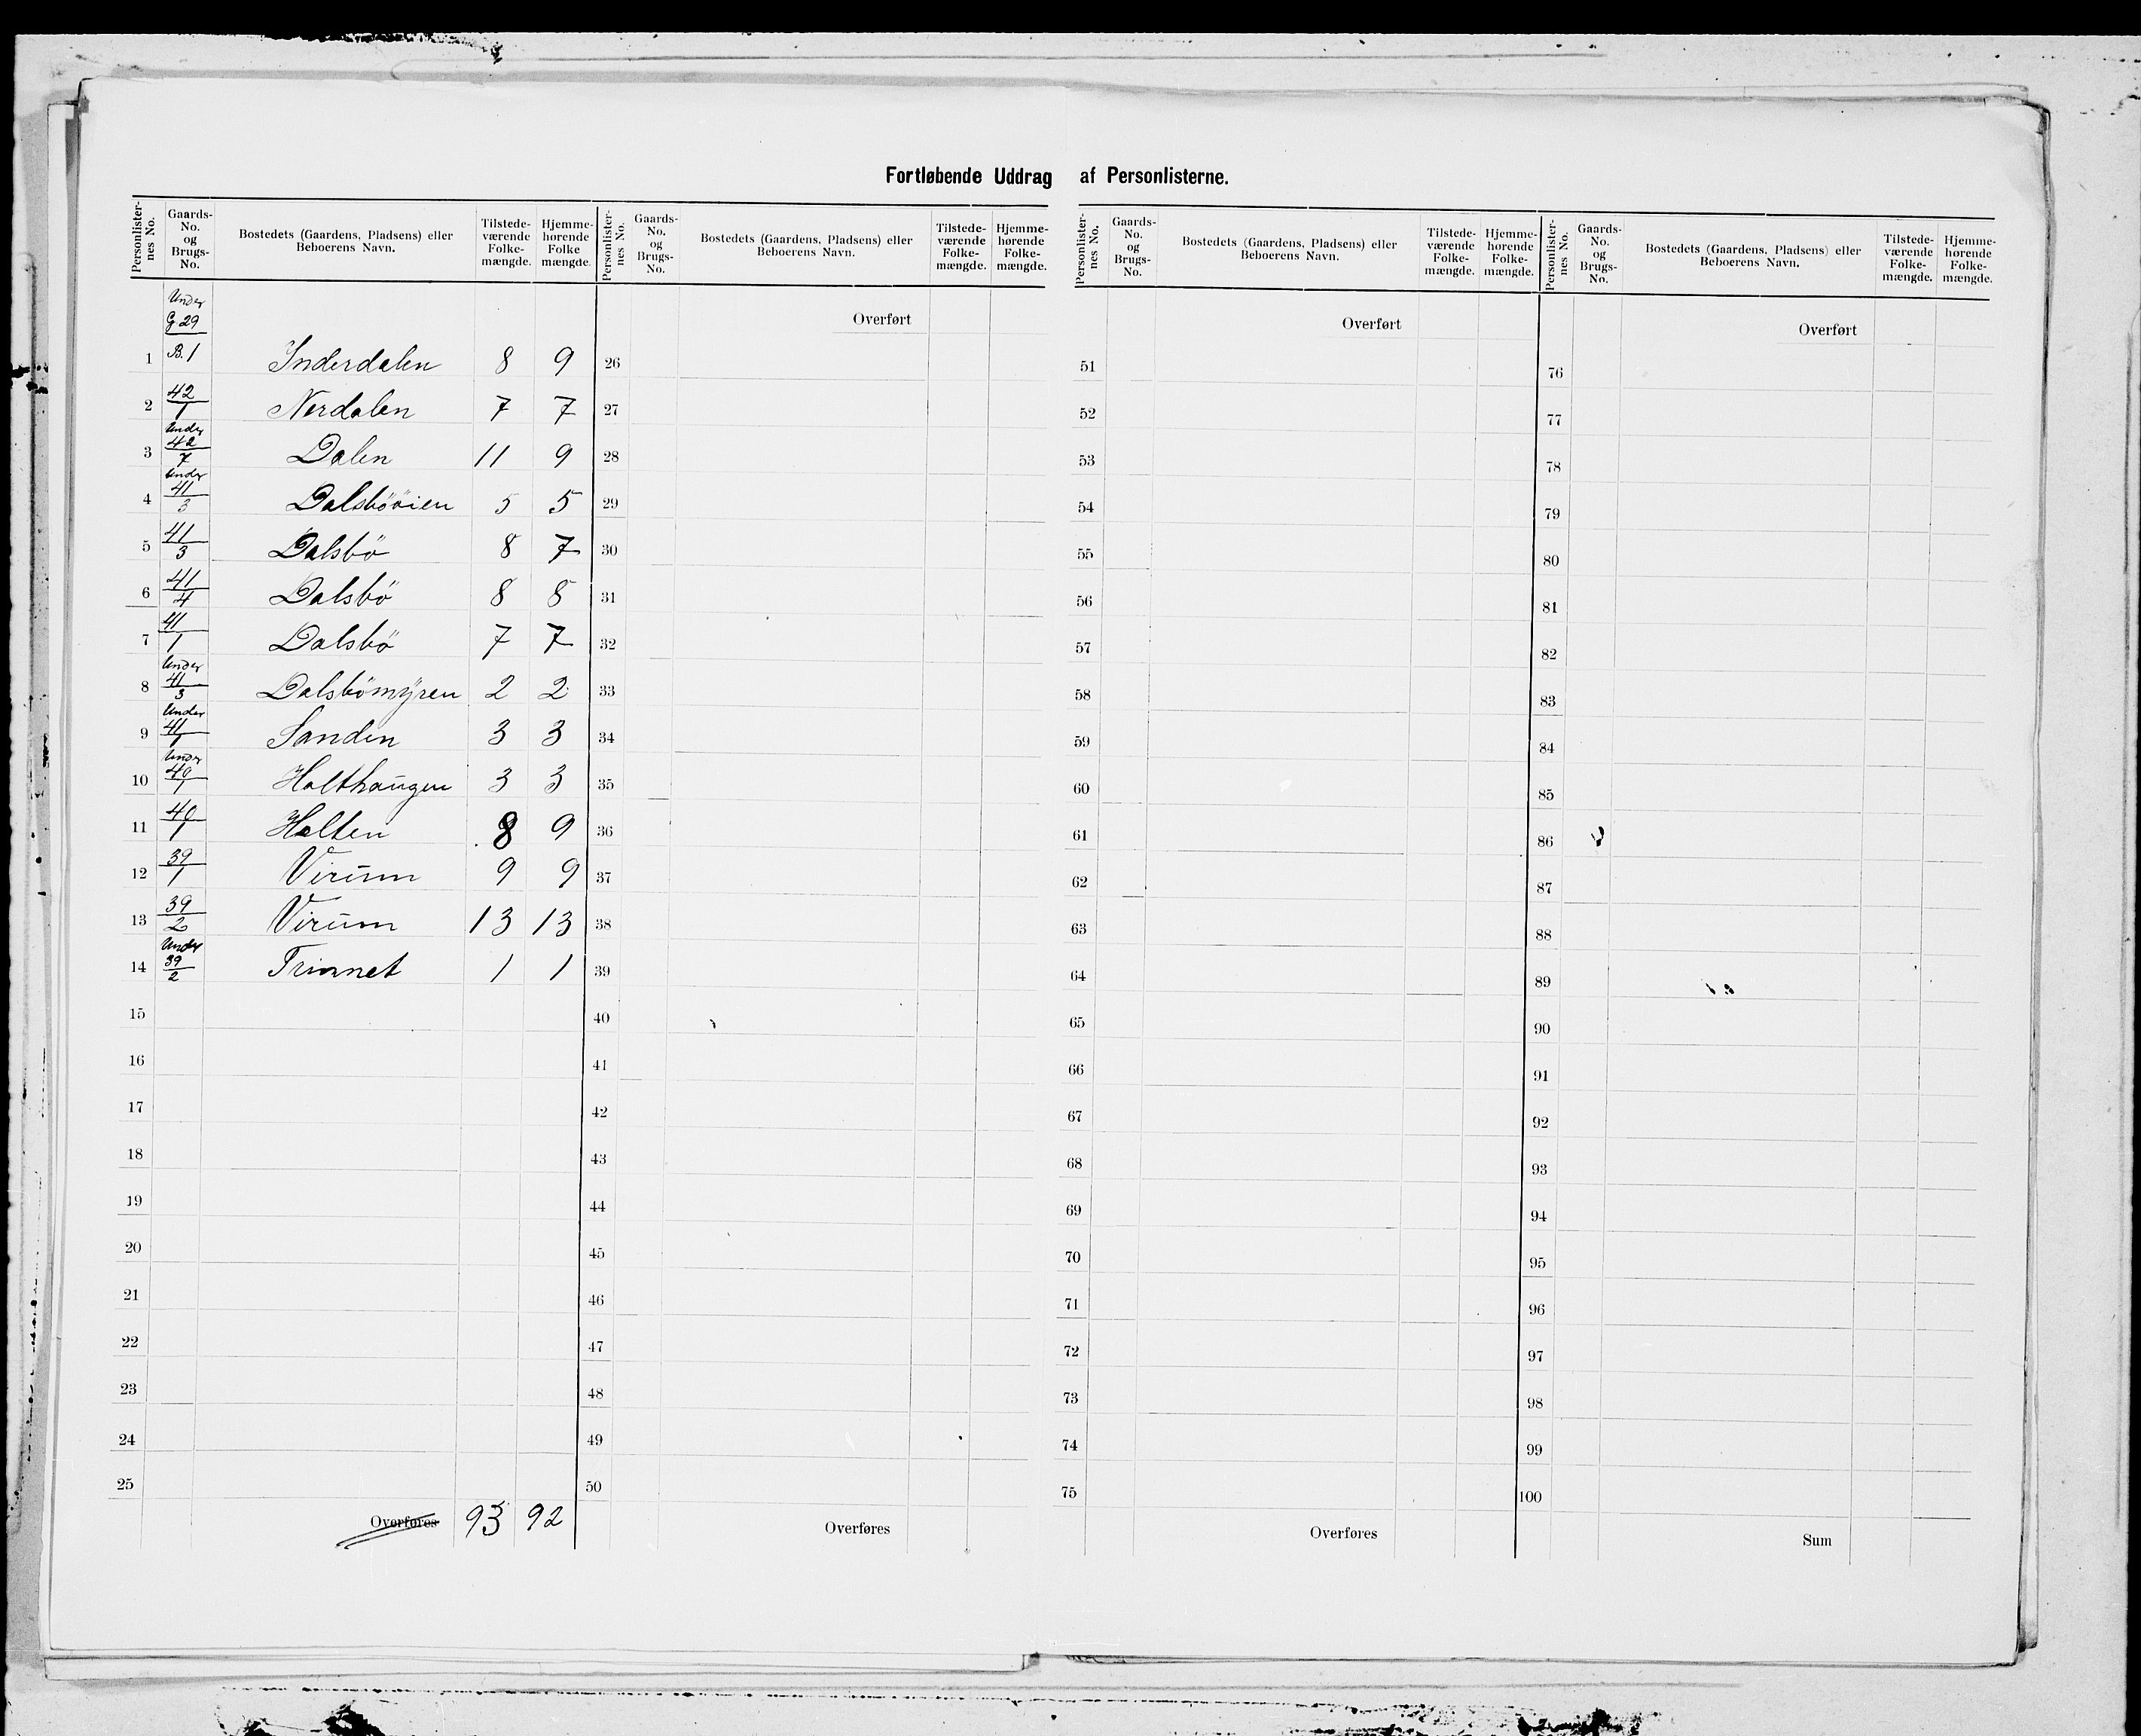 Fortløbende Uddrag af Personlisterne.
Personlister-nes No. Gaards-No. og Brugs-No. Bostedets (Gaardens, Pladsens) eller Beboerens Navn. Tilstede-værende Folke-mængde. Hjemme-hørende Folke mængde.
Personlister-nes No. Gaards-No. og Brugs-No. Bostedets (Gaardens, Pladsens) eller Beboerens Navn. Tilstede-værende Folke-mængde. Hjemme-hørende Folke-mængde.
Personlister-nes No. Gaards-No. og Brugs-No. Bostedets (Gaardens, Pladsens) eller Beboerens Navn. Tilstede-værende Folke-mængde. Hjemme-hørende Folke-mængde.
Personlister-nes No. Gaards-No. og Brugs-No. Bostedets (Gaardens, Pladsens) eller Beboerens Navn. Tilstede-værende Folke-mængde. Hjemme-hørende Folke-mængde.
Under G. 29
1 B. 1 Inderdalen 8 9
2 42/1 Nerdalen 7 7
3 Under 42/7 Dalen 11 9
4 Under 41/3 Dalsbööien 5 5
5 41/3 Dalsbö 8 7
6 41/4 Dalsbö 8 8
7 41/1 Dalsbö 7 7
8 Under 41/3 Dalsbömyren 2 2
9 Under 41/1 Sanden 3 3
10 Under 40/1 Holthaugen 3 3
11 40/1 Holten 8 9
12 39/1 Virum 9 9
13 39/2 Virum 13 13
14 Under 39/2 Trinnet 1 1
15
16
17
18
19
20
21
22
23
24
25
Overføres 93 92
Overført
26
27
28
29
30
31
32
33
34
35
36
37
38
39
40
41
42
43
44
45
46
47
48
49
50
Overføres
Overført
51
52
53
54
55
56
57
58
59
60
61
62
63
64
65
66
67
68
69
70
71
72
73
74
75
Overføres
Overført
76
77
78
79
80
81
82
83
84
85
86
87
88
89
90
91
92
93
94
95
96
97
98
99
100
Sum